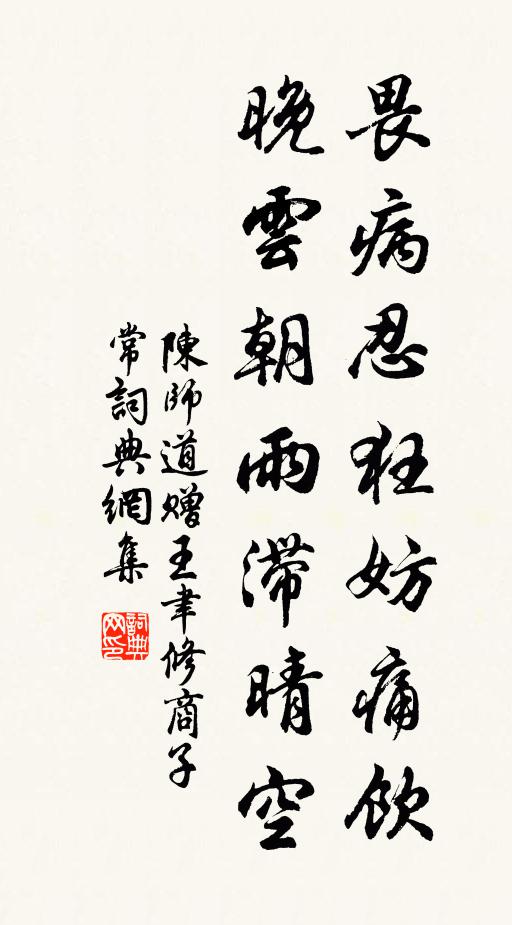 畏病忍狂妨痛飲
晚雲朝雨滯晴空
陳師道贈王聿修商子
常詞典網集
詞典網印